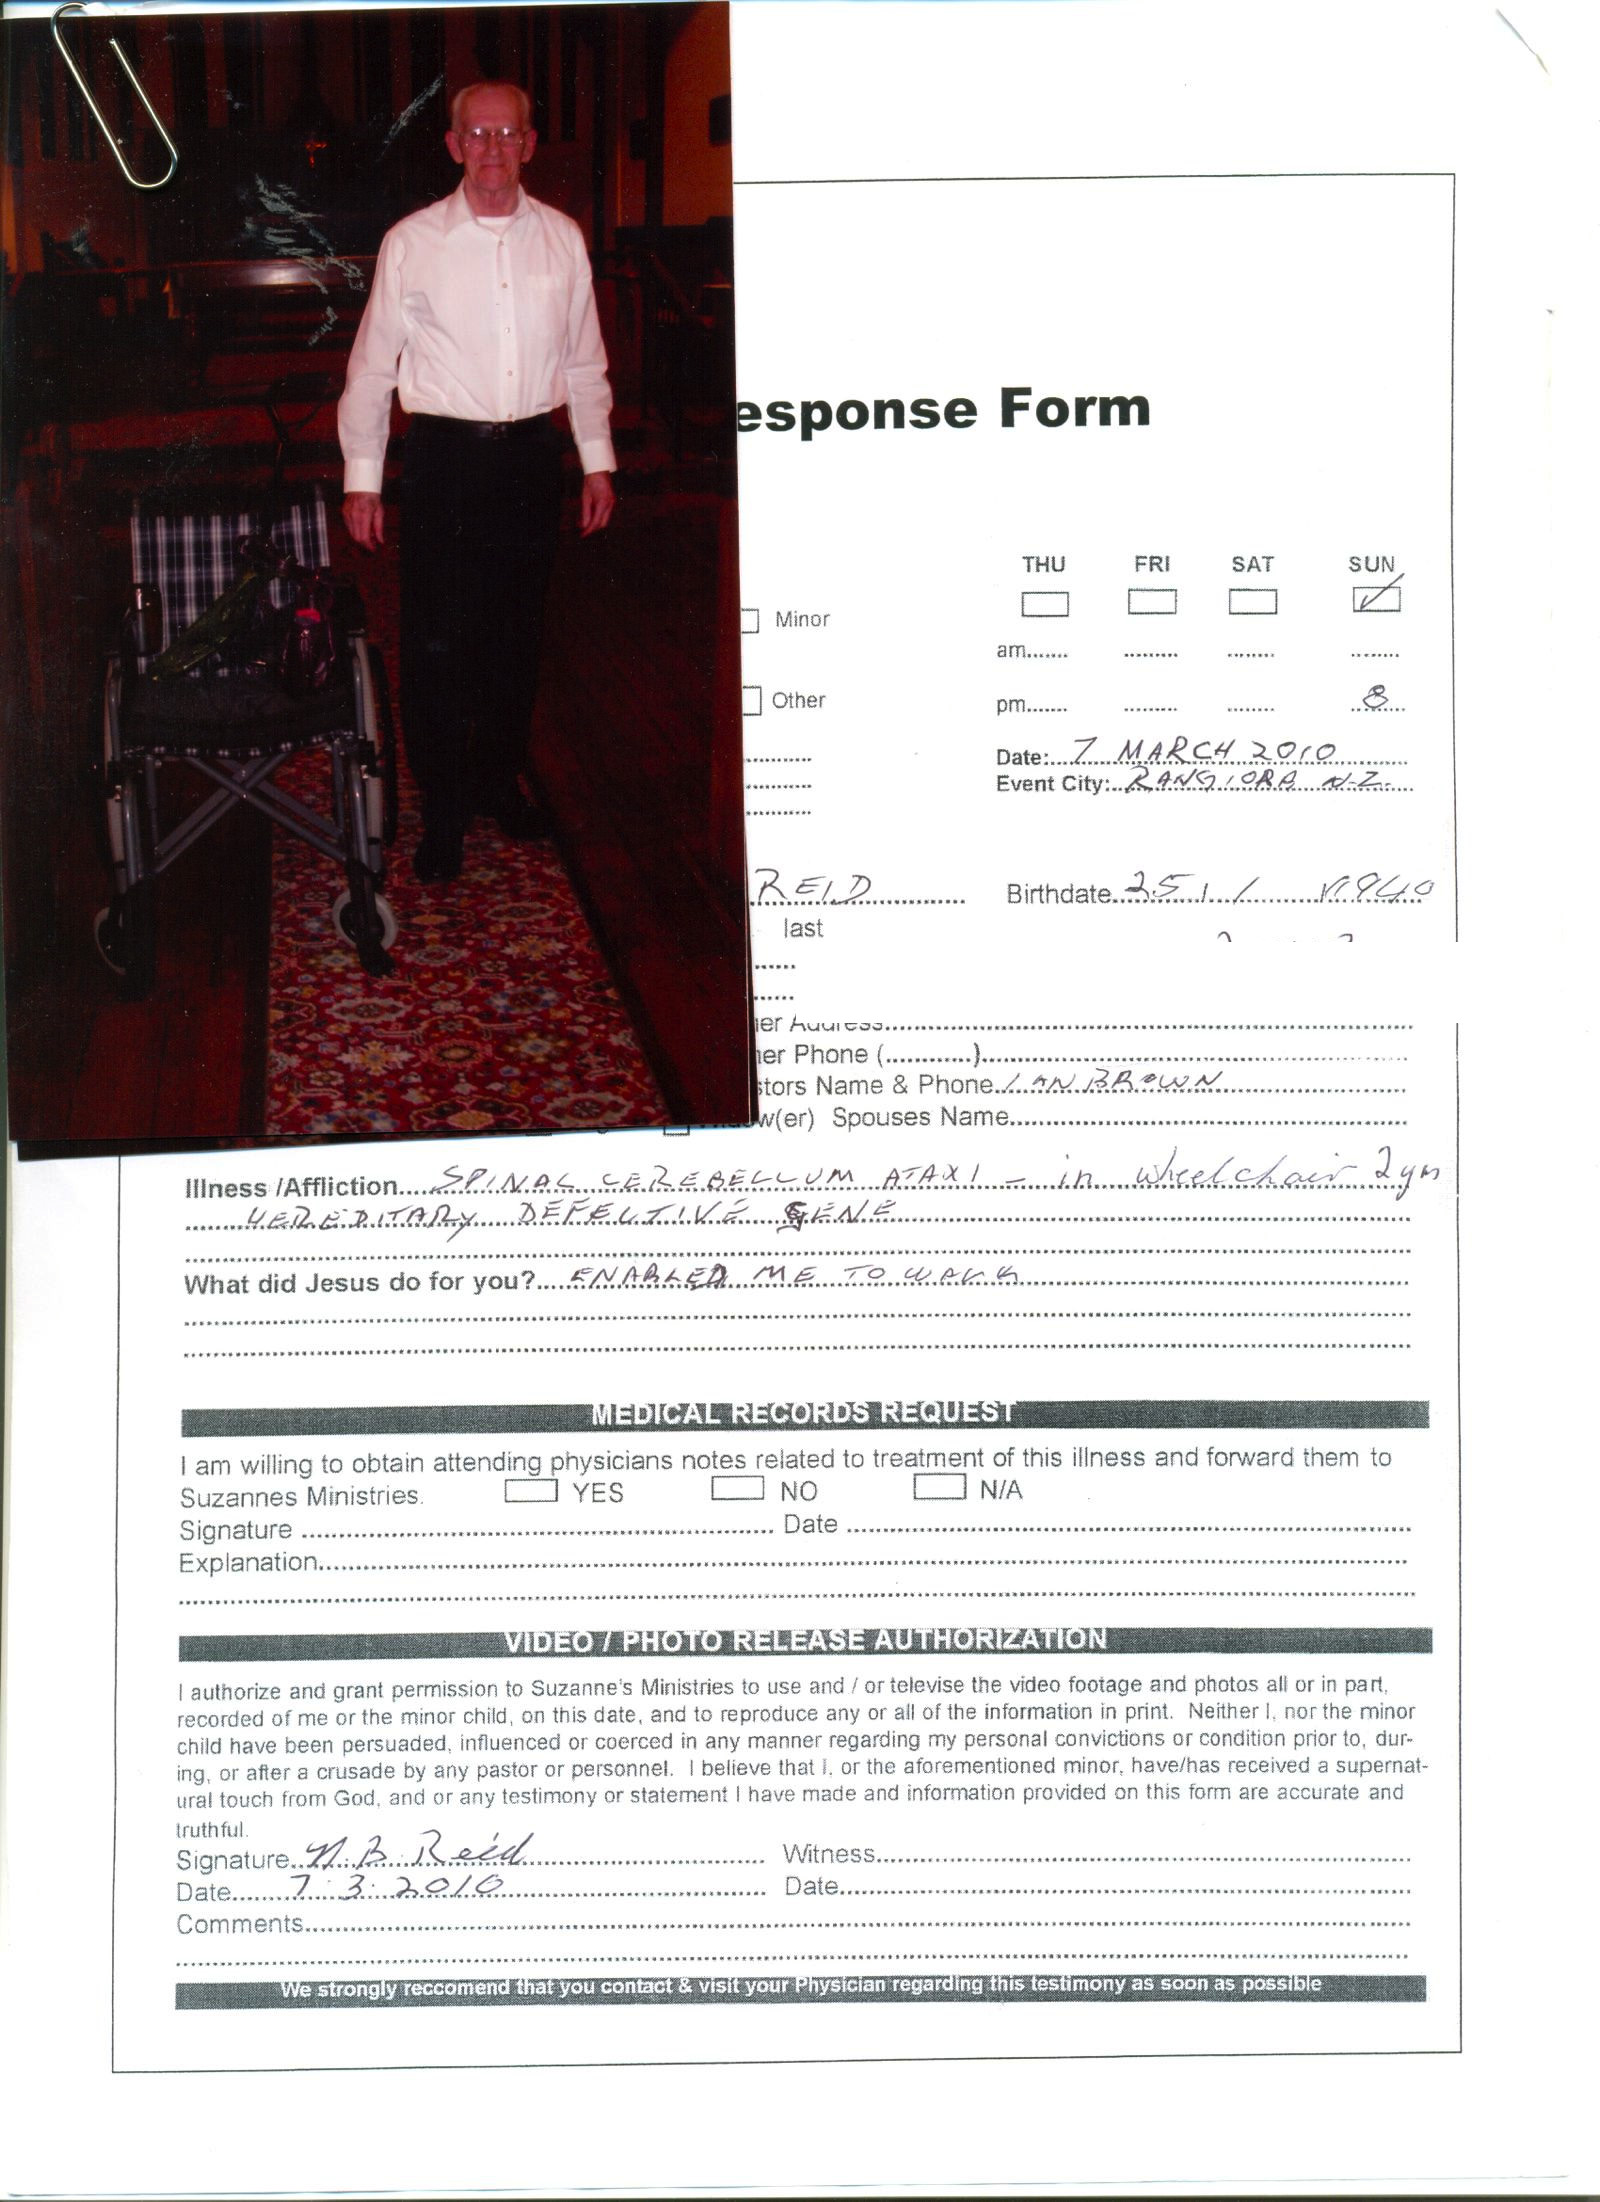 esponse Form
THU FRI SAT SUN
Minor
am.......
Other
pm....... 8
Date: 7 MARCH 2010
Event City: RANGIORA N.Z.
REID Birthdate 25 / 1 / 1940
last
er Address
her Phone (............)
stors Name & Phone IAN BROWN
w(er) Spouses Name
Illness /Affliction SPINAL CEREBELLUM ATAXI - in wheelchair 2 yrs
HEREDITARY DEFECTIVE GENE
What did Jesus do for you? ENABLED ME TO WALK
MEDICAL RECORDS REQUEST
I am willing to obtain attending physicians notes related to treatment of this illness and forward them to
Suzannes Ministries. YES NO N/A
Signature Date
Explanation
VIDEO / PHOTO RELEASE AUTHORIZATION
I authorize and grant permission to Suzanne's Ministries to use and / or televise the video footage and photos all or in part,
recorded of me or the minor child, on this date, and to reproduce any or all of the information in print. Neither I, nor the minor
child have been persuaded, influenced or coerced in any manner regarding my personal convictions or condition prior to, dur-
ing, or after a crusade by any pastor or personnel. I believe that I, or the aforementioned minor, have/has received a supernat-
ural touch from God, and or any testimony or statement I have made and information provided on this form are accurate and
truthful.
Signature N. B. Reid Witness
Date 7. 3. 2010 Date
Comments
We strongly reccomend that you contact & visit your Physician regarding this testimony as soon as possible